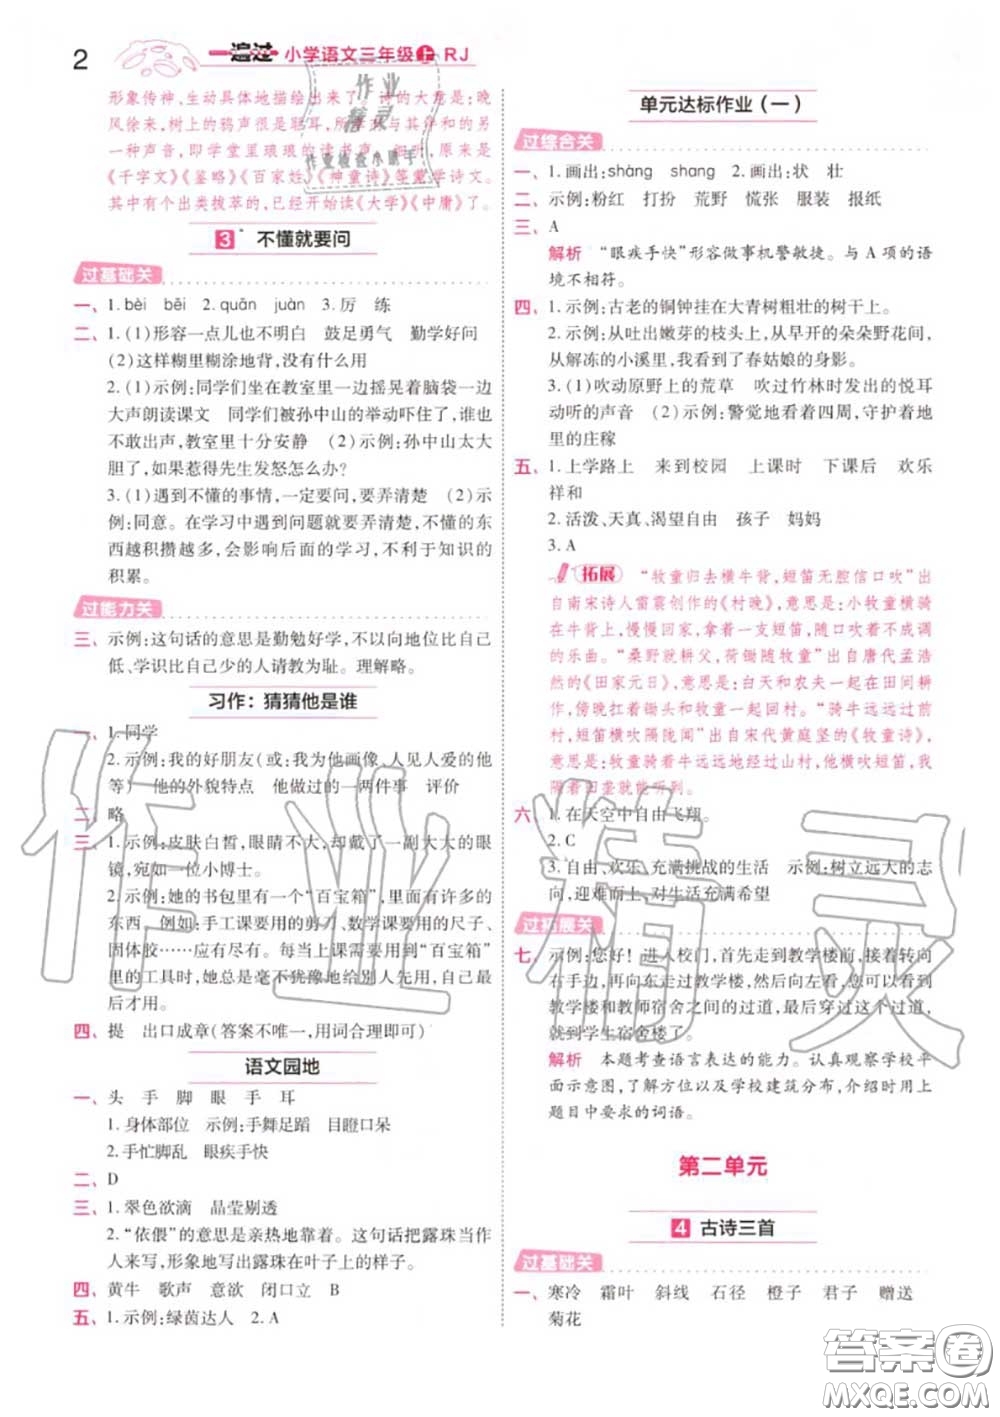 2
一遍过 小学语文三年级 上 RJ
形象传神,生动具体地描绘出来了。诗的大意是:晚
风徐来,树上的鸦声很是聒耳,所幸的是还有另外一
种声音,即学堂里琅琅的读书声。细听,原来是
《千字文》《鉴略》《百家姓》《神童诗》等蒙学诗文。
其中有个出类拔萃的,已经开始读《大学》《中庸》了。
3* 不懂就要问
过基础关
一、1. bèi bēi 2. quān juàn 3. 厉 练
二、1. (1)形容一点儿也不明白 鼓足勇气 勤学好问
(2)这样糊里糊涂地背,没有什么用
2. (1)示例:同学们坐在教室里一边摇晃着脑袋一边
大声朗读课文 同学们被孙中山的举动吓住了,谁也
不敢出声,教室里十分安静 (2)示例:孙中山太大
胆了,如果惹得先生发怒怎么办?
3. (1)遇到不懂的事情,一定要问,要弄清楚 (2)示
例:同意。在学习中遇到问题就要弄清楚,不懂的东
西越积攒越多,会影响后面的学习,不利于知识的
积累。
过能力关
三、示例:这句话的意思是勤勉好学,不以向地位比自己
低、学识比自己少的人请教为耻。理解略。
习作：猜猜他是谁
一、1. 同学
2. 示例:我的好朋友(或:我为他画像 人见人爱的他
等) 他的外貌特点 他做过的一两件事 评价
二、略
三、1. 示例:皮肤白皙,眼睛不大,却戴了一副大大的眼
镜,宛如一位小博士。
2. 示例:她的书包里有一个“百宝箱”,里面有许多的
东西 例如:手工课要用的剪刀、数学课要用的尺子、
固体胶……应有尽有。每当上课需要用到“百宝箱”
里的工具时,她总是毫不犹豫地给别人先用,自己最
后才用。
四、提 出口成章(答案不唯一,用词合理即可)
语文园地
一、头 手 脚 眼 手 耳
1. 身体部位 示例:手舞足蹈 目瞪口呆
2. 手忙脚乱 眼疾手快
二、D
三、1. 翠色欲滴 晶莹剔透
2. “依偎”的意思是亲热地靠着。这句话把露珠当作
人来写,形象地写出露珠在叶子上的样子。
四、黄牛 歌声 意欲 闭口立 B
五、1. 示例:绿茵达人 2. A
单元达标作业(一)
过综合关
一、1. 画出:shàng shang 2. 画出:状 壮
二、示例:粉红 打扮 荒野 慌张 服装 报纸
三、A
解析 “眼疾手快”形容做事机警敏捷。与 A 项的语
境不相符。
四、1. 示例:古老的铜钟挂在大青树粗壮的树干上。
2. 示例:从吐出嫩芽的枝头上,从早开的朵朵野花间,
从解冻的小溪里,我们看到了春姑娘的身影。
3. (1)吹动原野上的荒草 吹过竹林时发出的悦耳
动听的声音 (2)示例:警觉地看着四周,守护着地
里的庄稼
五、1. 上学路上 来到校园 上课时 下课后 欢乐
祥和
2. 活泼、天真、渴望自由 孩子 妈妈
3. A
拓展 “牧童归去横牛背,短笛无腔信口吹”出
自南宋诗人雷震创作的《村晚》,意思是:小牧童横骑
在牛背上,慢慢回家,拿着一支短笛,随口吹着不成调
的乐曲。“桑野就耕父,荷锄随牧童”出自唐代孟浩
然的《田家元日》,意思是:白天和农夫一起在田间耕
种,傍晚扛着锄头和牧童一起回村。“骑牛远远过前
村,短笛横吹隔陇闻”出自宋代黄庭坚的《牧童诗》,
意思是:牧童骑着牛远远地经过山村,他横吹短笛,我
隔着田垄就能听到。
六、1. 在天空中自由飞翔。
2. C
3. 自由、欢乐、充满挑战的生活 示例:树立远大的志
向,迎难而上,对生活充满希望
过拓展关
七、示例:您好!进入校门,首先走到教学楼前,接着转向
右手边,再向东走过教学楼,然后向左看,您可以看到
教学楼和教师宿舍之间的过道,最后穿过这个过道,
就到学生宿舍楼了。
解析 本题考查语言表达的能力。认真观察学校平
面示意图,了解方位以及学校建筑分布,介绍时用上
题目中要求的词语。
第二单元
4 古诗三首
过基础关
一、寒冷 霜叶 斜线 石径 橙子 君子 赠送
菊花
作业精灵
作业检查小助手
作业精灵
答案圈
MXQE.COM